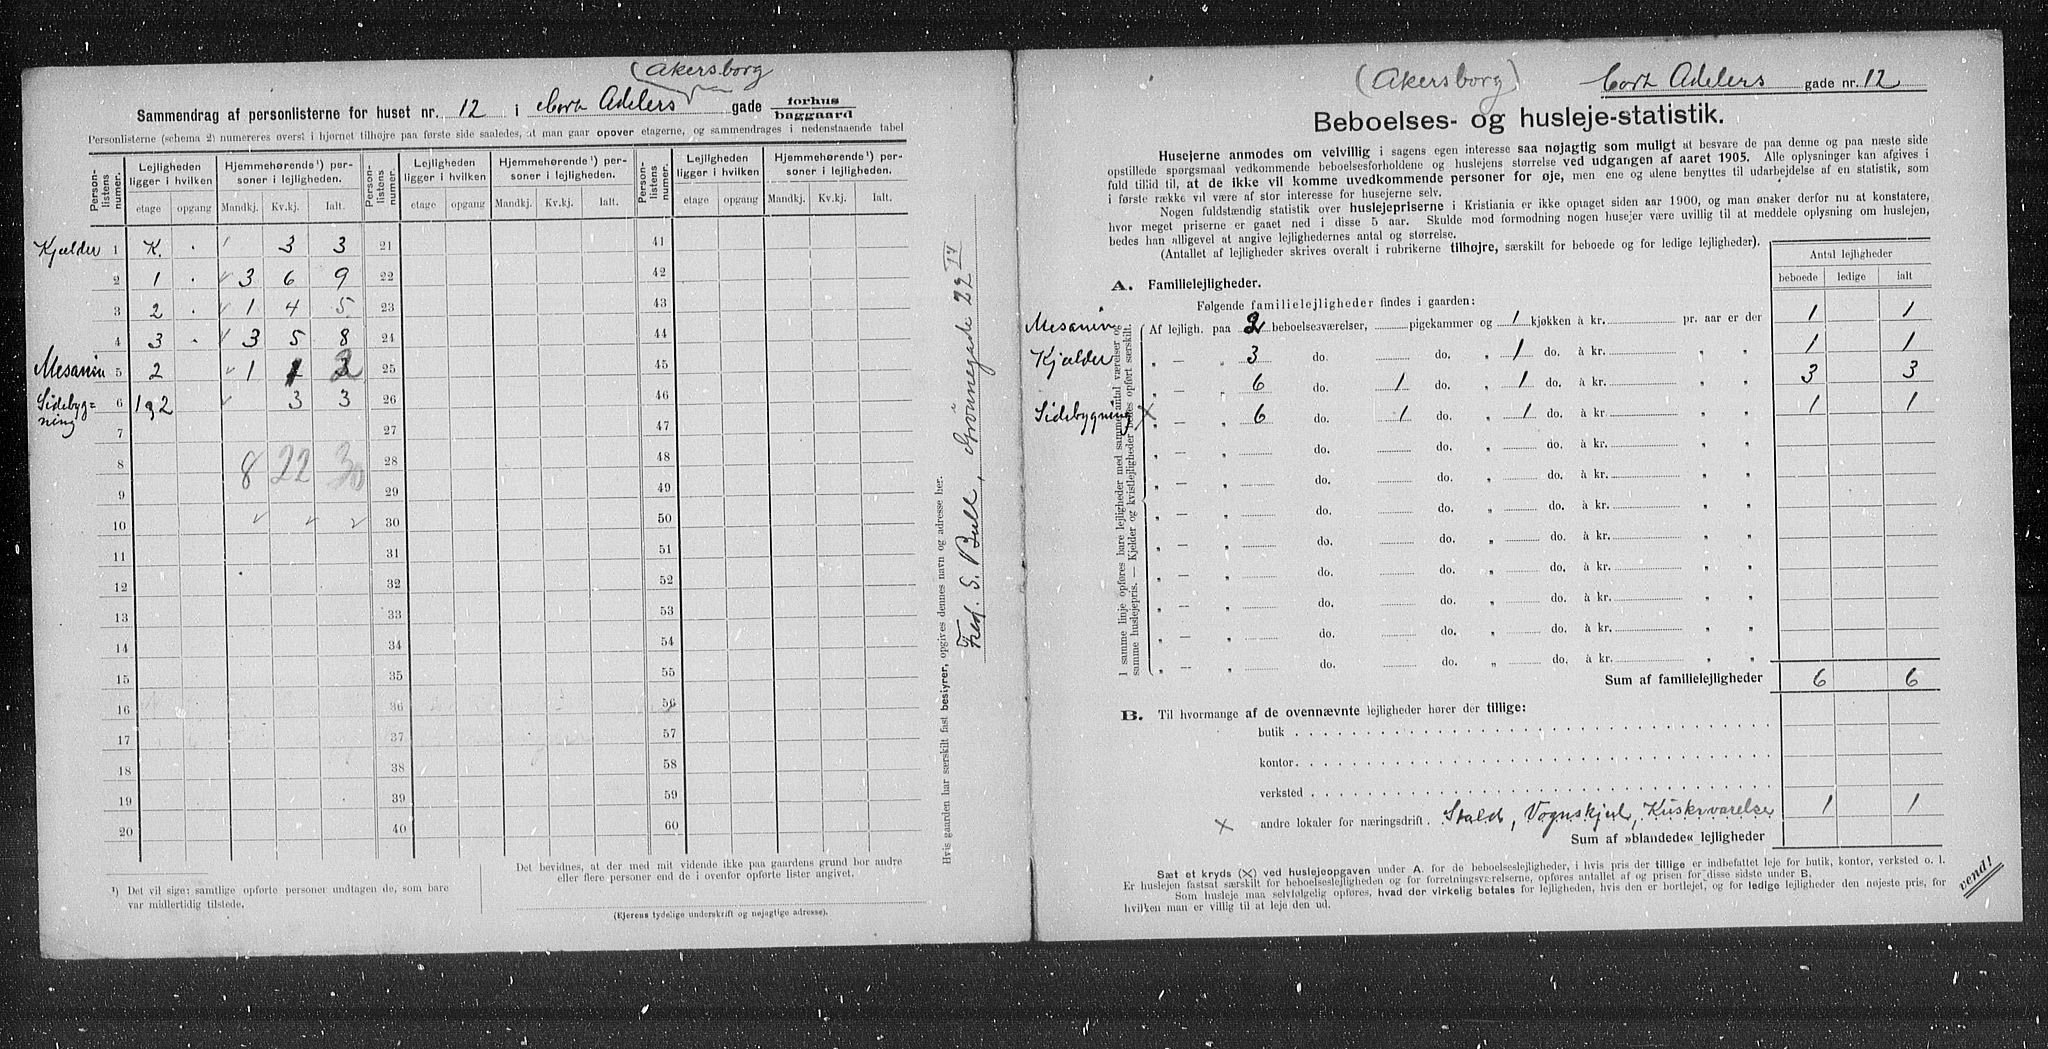 (Akersborg)
Sammendrag af personlisterne for huset nr. 12 i Cort Adelers gade forhus baggaard
Personlisterne (schema 2) numereres øverst i hjørnet tilhøjre paa første side saaledes, at man gaar opover etagerne, og sammendrages i nedenstaaende tabel
Personlistens numer. Lejligheden ligger i hvilken Hjemmehørende¹) personer i lejligheden. Personlistens numer. Lejligheden ligger i hvilken Hjemmehørende¹) personer i lejligheden. Personlistens numer. Lejligheden ligger i hvilken Hjemmehørende¹) personer i lejligheden.
etage opgang Mandkj. Kv.kj. Ialt. etage opgang Mandkj. Kv.kj. Ialt. etage opgang Mandkj. Kv.kj. Ialt.
Kjælder 1 K. 3 3 21 41
2 1 3 6 9 22 42
3 2 1 4 5 23 43
4 3 3 5 8 24 44
Mesanin 5 2 1 1 2 25 45
Sidebygning 6 1 og 2 3 3 26 46
7 27 47
8 8 22 30 28 48
9 29 49
10 30 50
11 31 51
12 32 52
13 33 53
14 34 54
15 35 55
16 36 56
17 37 57
18 38 58
19 39 59
20 40 60
¹) Det vil sige: samtlige opførte personer undtagen de, som bare
var midlertidig tilstede.
Det bevidnes, at der med mit vidende ikke paa gaardens grund bor andre
eller flere personer end de i ovenfor opførte lister angivet.
(Ejerens tydelige underskrift og nøjagtige adresse).
Hvis gaarden har særskilt fast bestyrer, opgives dennes navn og adresse her.
Fred. S. Bull, Grønnegade 22 IV
(Akersborg) Cort Adelers gade nr. 12
Beboelses- og husleje-statistik.
Husejerne anmodes om velvillig i sagens egen interesse saa nøjagtig som muligt at besvare de paa denne og paa næste side
opstillede spørgsmaal vedkommende beboelsesforholdene og huslejens størrelse ved udgangen af aaret 1905. Alle oplysninger kan afgives i
fuld tillid til, at de ikke vil komme uvedkommende personer for øje, men ene og alene benyttes til udarbejdelse af en statistik, som
i første række vil være af stor interesse for husejerne selv.
Nogen fuldstændig statistik over huslejepriserne i Kristiania er ikke optaget siden aar 1900, og man ønsker derfor nu at konstatere,
hvor meget priserne er gaaet ned i disse 5 aar. Skulde mod formodning nogen husejer være uvillig til at meddele oplysning om huslejen,
bedes han alligevel at angive lejlighedernes antal og størrelse.
(Antallet af lejligheder skrives overalt i rubrikerne tilhøjre, særskilt for beboede og for ledige lejligheder).
Antal lejligheder
beboede ledige ialt
A. Familielejligheder.
Følgende familielejligheder findes i gaarden:
Mesanin Af lejligh. paa 2 beboelsesværelser, pigekammer og 1 kjøkken à kr. pr. aar er der 1 1
Kjælder „ — „ 3 do. do. „ 1 do. à kr. „ „ 1 1
„ — „ 6 do. 1 do. „ 1 do. à kr. „ „ 3 3
Sidebygning × „ — „ 6 do. 1 do. „ 1 do. à kr. „ „ 1 1
„ — „ do. do. „ do. à kr. „ „
„ — „ do. do. „ do. à kr. „ „
„ — „ do. do. „ do. à kr. „ „
„ — „ do. do. „ do. à kr. „ „
„ — „ do. do. „ do. à kr. „ „
„ — „ do. do. „ do. à kr. „ „
„ — „ do. do. „ do. à kr. „ „
„ — „ do. do. „ do. à kr. „ „
I samme linje opføres bare lejligheder med samme antal værelser og
samme huslejepris. — Kjelder og kvistlejligheder bedes opført særskilt.
Sum af familielejligheder 6 6
B. Til hvormange af de ovennævnte lejligheder hører der tillige:
butik
kontor
verksted
× andre lokaler for næringsdrift. Stald, Vognskjul, Kuskeværelse 1 1
Sum af »blandede« lejligheder
Sæt et kryds (×) ved huslejeopgaven under A. for de beboelseslejligheder, i hvis pris der tillige er indbefattet leje for butik, kontor, verksted o. l.
Er huslejen fastsat særskilt for beboelseslejligheden og for forretningsværelserne, opføres antallet af og prisen for disse sidste under B.
Som husleje maa selvfølgelig opføres, hvad der virkelig betales for lejligheden, hvis den er bortlejet, og for ledige lejligheder den nøjeste pris, for
hvilken man er villig til at leje den ud.
vend!